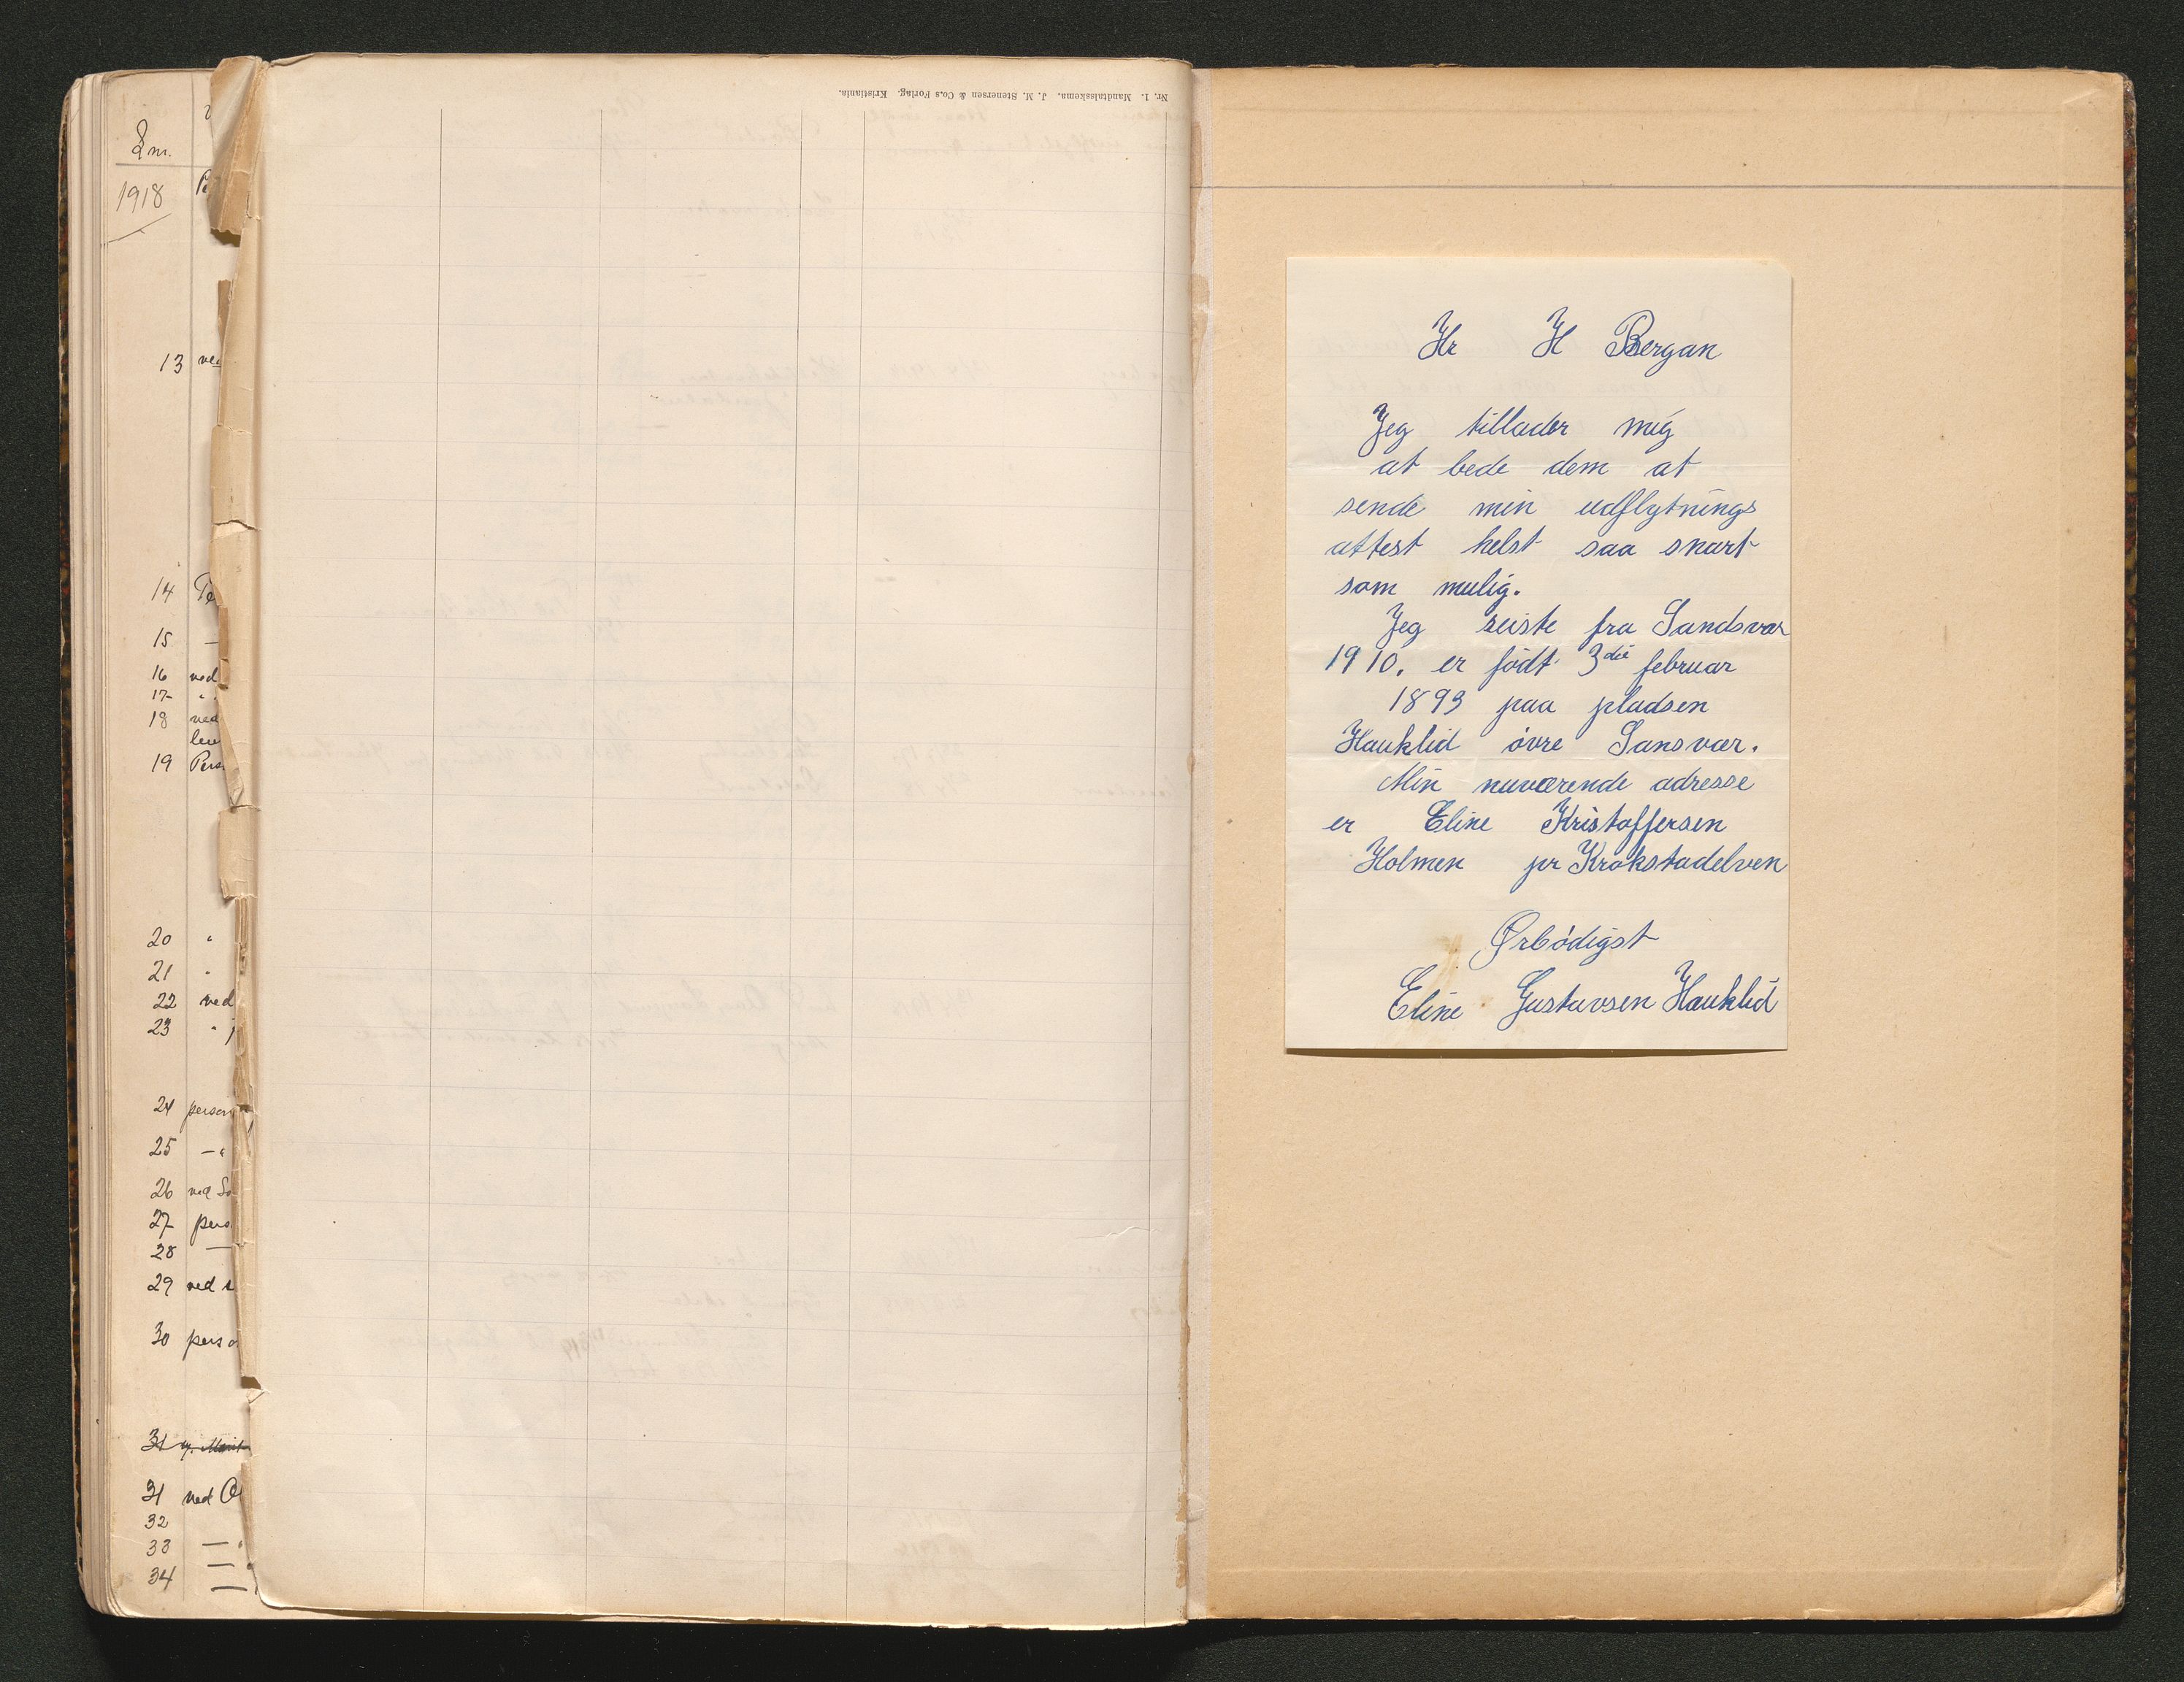 Nr. 1. Mandtalsskema. J. M. Stenersen & Co.s Forlag. Kristiania.
Lnr.
1918
13
14
15
16 ved
17 "
18 ved
19 Pers
20 "
21 "
22 ved
23 "
24 person
25 — "
26 ved
27 pers
28 —
29 ved
30 perso
31
31 ved
32
33 —
34 —
Hr H Bergan
Jeg tillader mig
at bede dem at
sende min udflytnings
attest helst saa snart
som mulig.
Jeg reiste fra Sandsvær
1910. er födt 3die februar
1893 paa pladsen
Hauklid övre Sansvær.
Min nuværende adresse
er Eline Kristoffersen
Holmen pr Krokstadelven
Ørbödigst
Eline Gustavsen Hauklid